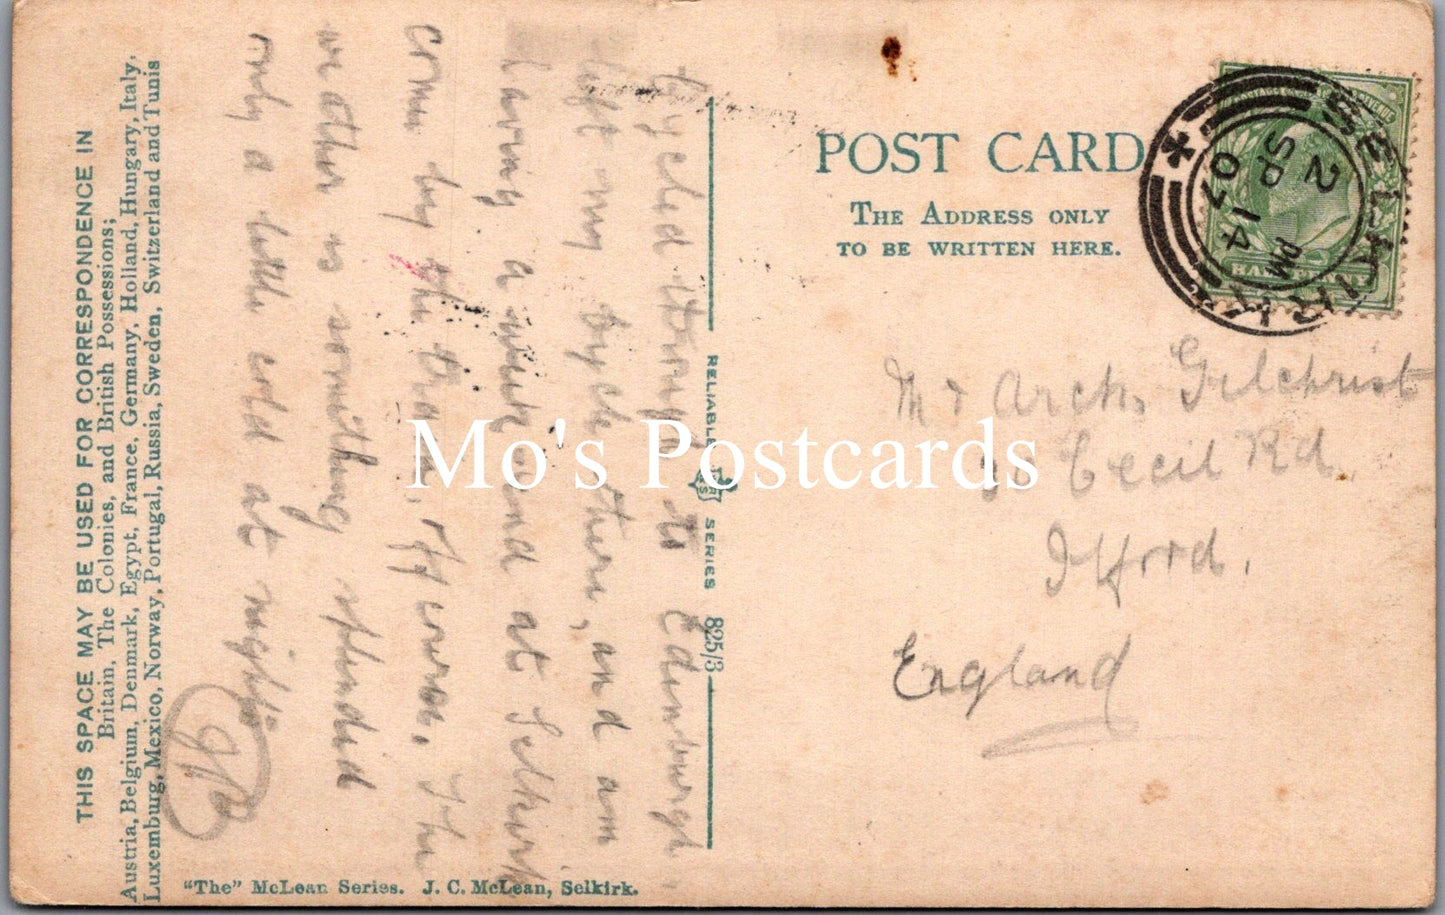 THIS SPACE MAY BE USED FOR CORRESPONDENCE IN
Britain, The Colonies, and British Possessions;
Austria, Belgium, Denmark, Egypt, France, Germany, Holland, Hungary, Italy,
Luxemburg, Mexico, Norway, Portugal, Russia, Sweden, Switzerland and Tunis
Cycled through to Edinburgh,
left my bycle there, and am
having a week end at Selkirk
come by the train, of course. The
weather is something splendid
only a little cold at night
"The" McLean Series. J. C. McLean, Selkirk.
RELIABLE
SERIES 825/3
POST CARD
THE ADDRESS ONLY
TO BE WRITTEN HERE.
SELKIRK
2 PM
SP 14
07
Mr Arch. Gilchrist
Cecil Rd
Ilford.
England
Mo's Postcards